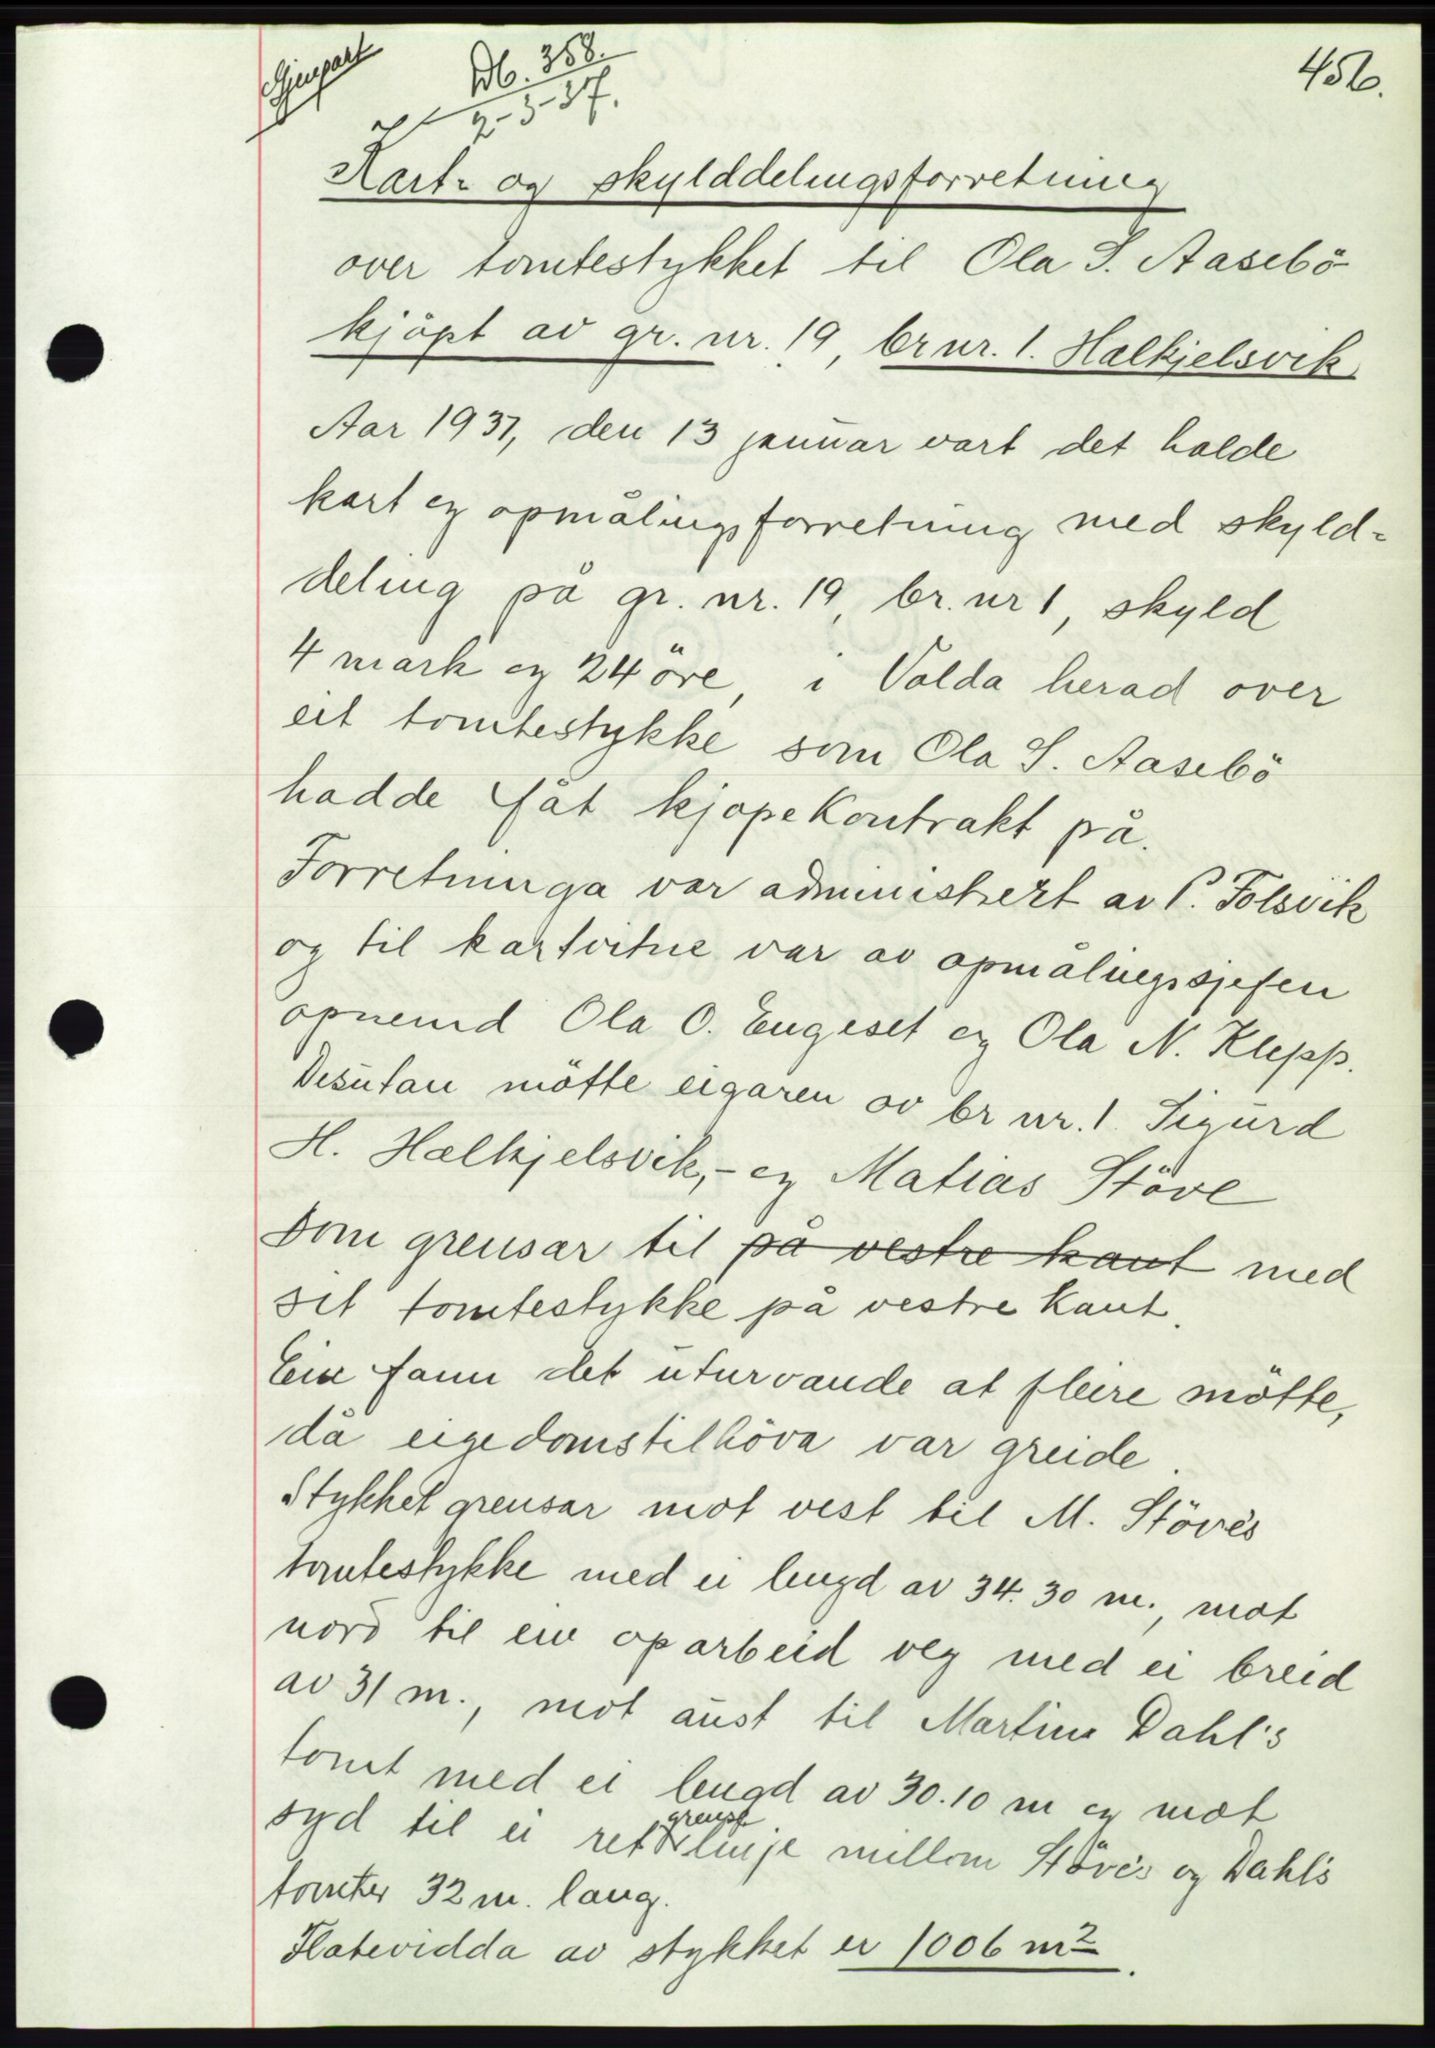 Gjenpart
Db. 358.
2-3-37.
456.
Kart- og skylddelingsforretning
over tomtestykket til Ola S. Aasebö
kjöpt av gr. nr. 19, br nr. 1. Halkjelsvik
Aar 1937, den 13 januar vart det halde
kart og opmålingsforretning med skyld-
deling på gr. nr. 19, br. nr 1, skyld
4 mark og 24 öre, i Volda herad over
eit tomtestykke som Ola S. Aasebö
hadde fåt kjöpekontrakt på.
Forretninga var administrert av P. Folsvik
og til kartvitne var av opmålingssjefen
opnemd Ola O. Engeset og Ola N. Klepp.
Desutan mötte eigaren av br nr. 1. Sigurd
H. Halkjelsvik,- og Matias Stöve
som grensar til på vestre kant med
sit tomtestykke på vestre kant.
Ein fann det uturvande at fleire mötte,
då eigedomstilhöva var greide.
Stykket grensar mot vest til M. Stöve's
tomtestykke med ei lengd av 34.30 m., mot
nord til ein oparbeid veg med ei breid
av 31 m., mot aust til Martin Dahl's
tomt med ei lengd av 30.10 m og mot
syd til ei ret grense linje millom Stöve's og Dahl's
tomter 32 m. lang.
Flatevidda av stykket er 1006 m².